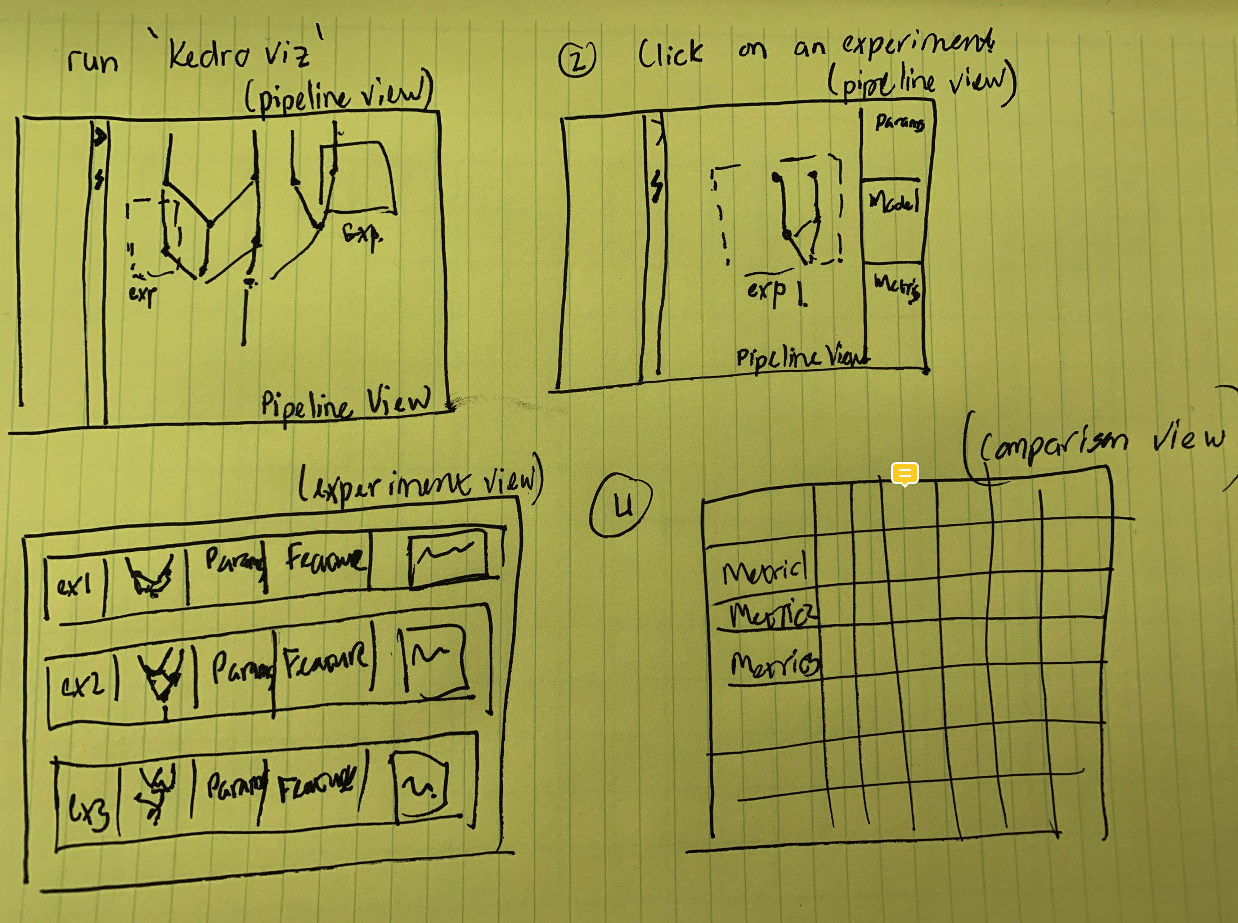 run 'Kedro viz'
(pipeline view)
exp
Exp.
Pipeline View
② Click on an experiment
(pipeline view)
Params
Model
Metrics
exp 1.
Pipeline View
(experiment view)
ex1 Params Feature
ex2 Params Feature
ex3 Params Feature
4
(comparison view)
Metric1
Metric2
Metric3